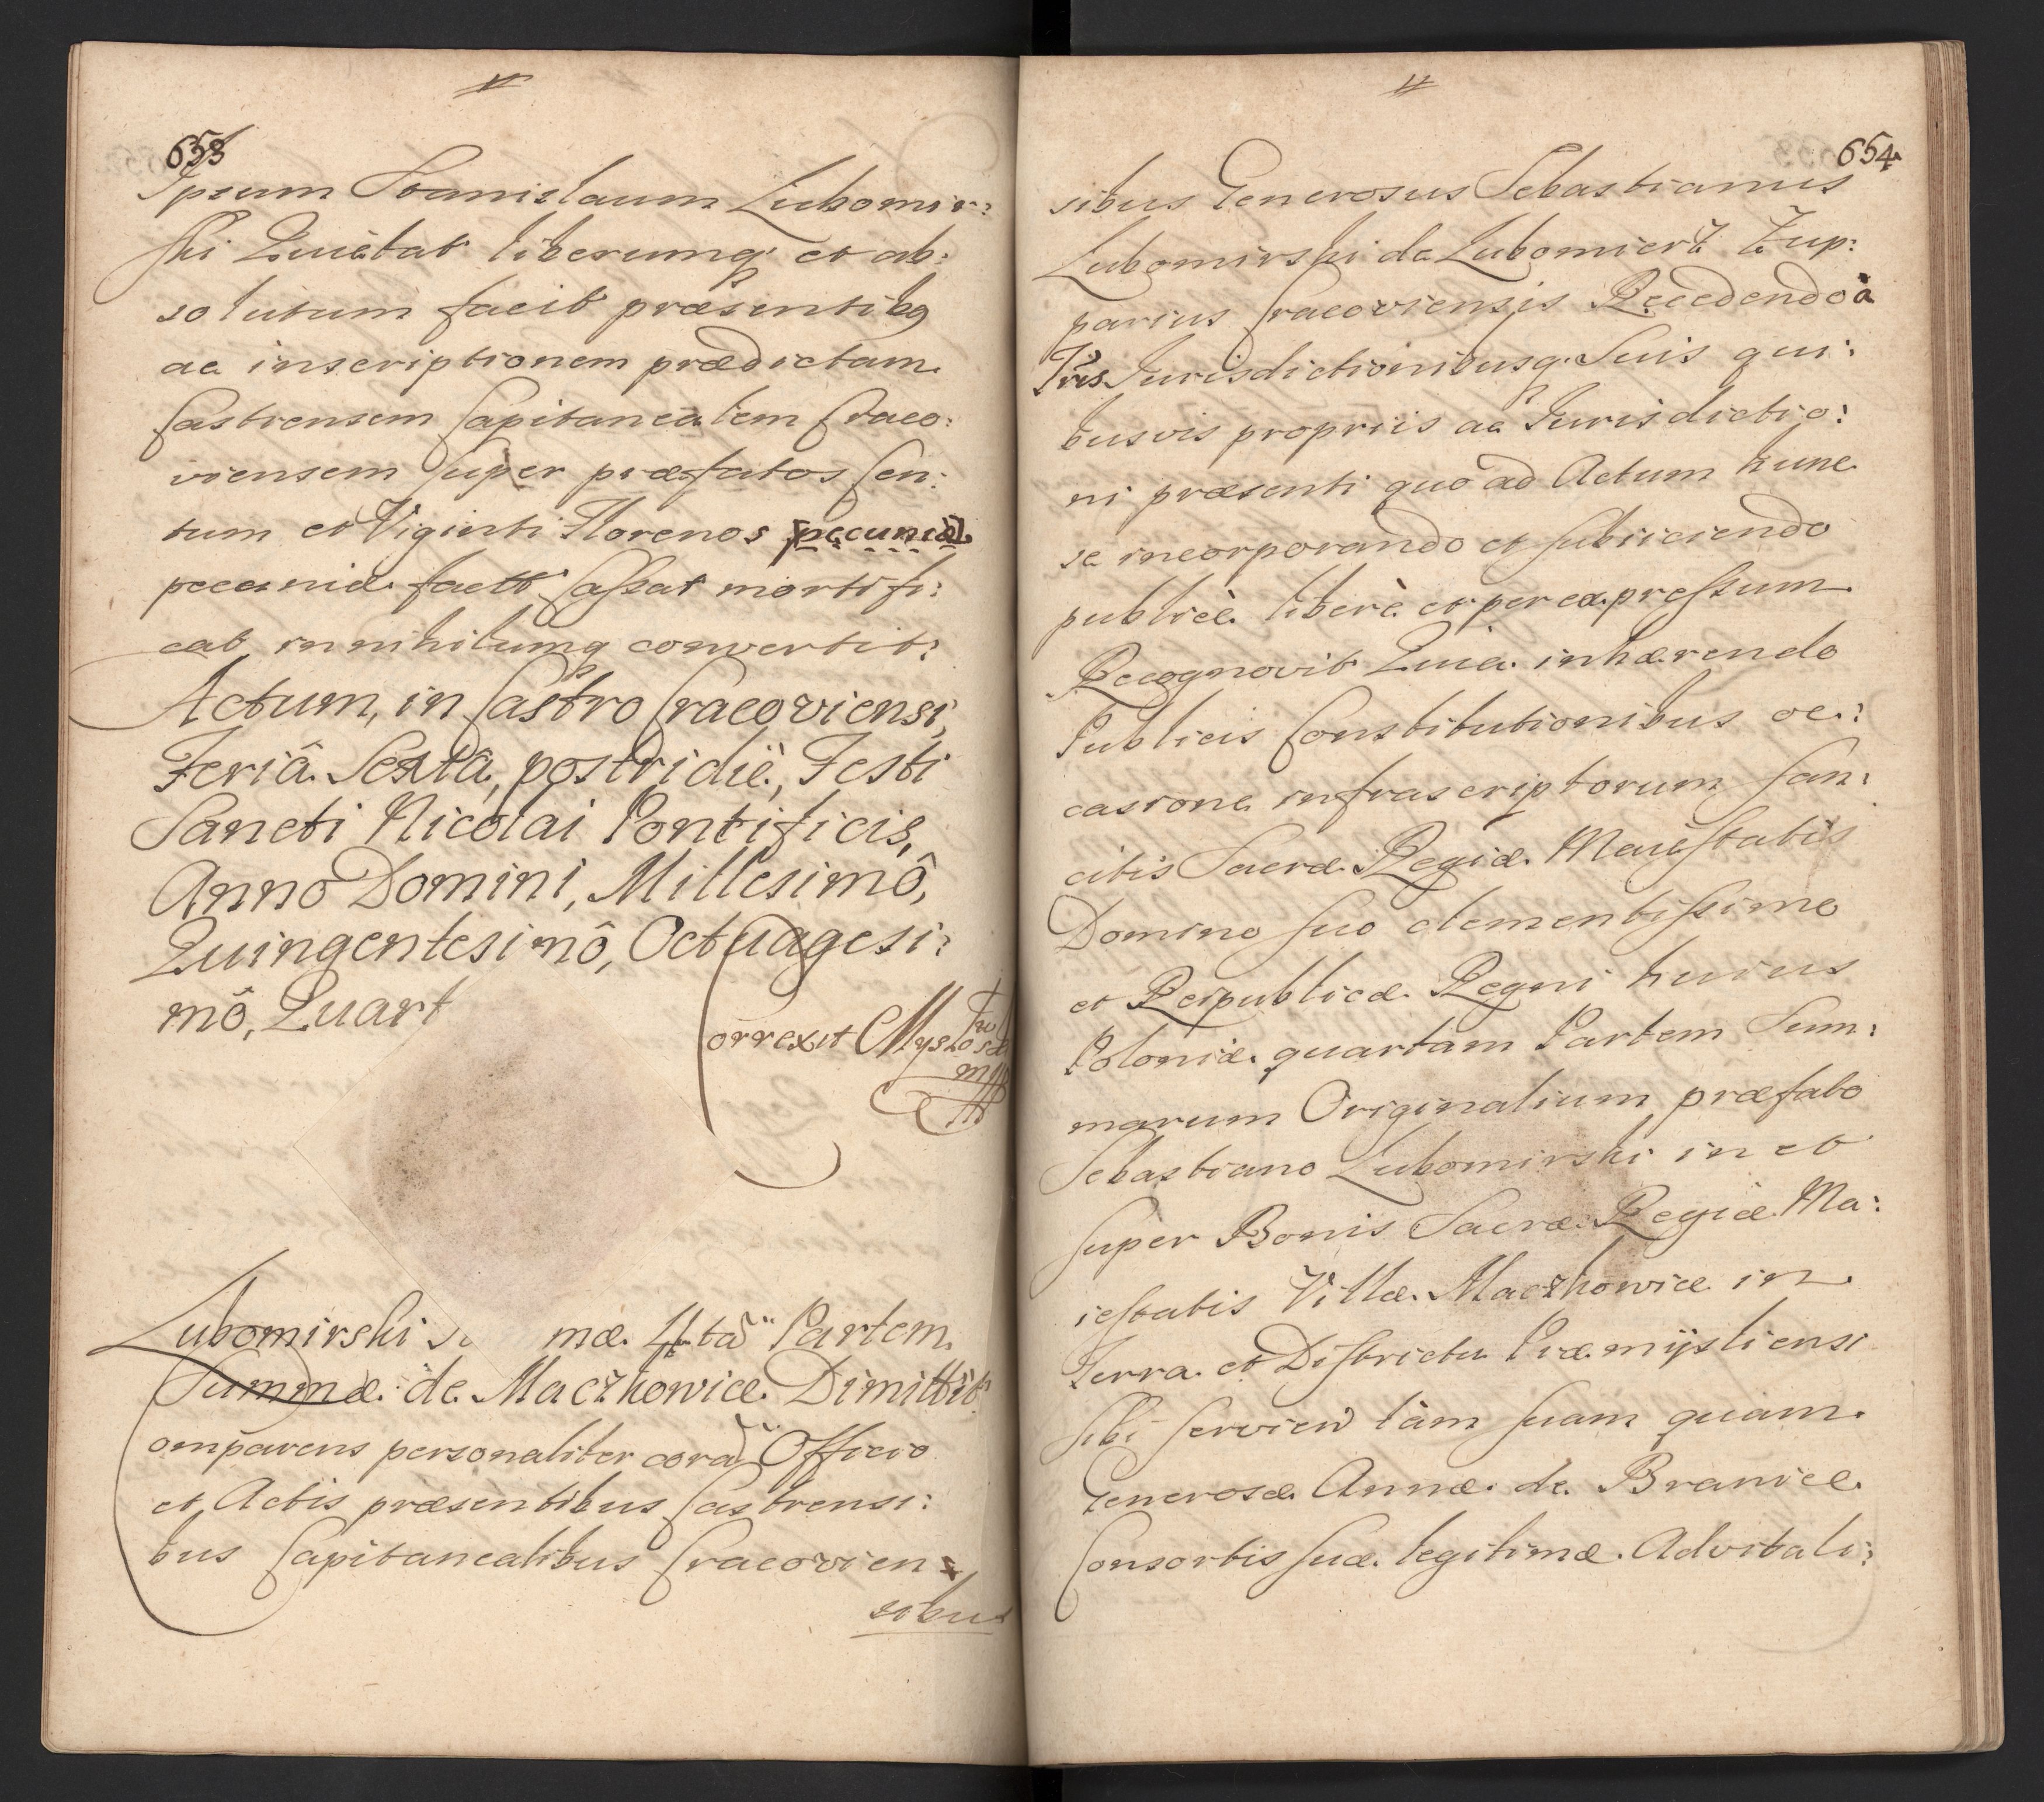 653
Ipsum Stanislaum Lubomir:
ski Quietat liberumq et ab:
solutum facit præsentibq
ac inscriptionem prædictam
Castrensem Capitanealem Craco:
viensem super præfatos Cen:
tum et Viginti Florenos [pecuniæ]
pecuniæ factt Cassat mortifi:
cat in nihilumq convertit:
Actum, in Castro Cracoviensi,
Feriâ Sextâ, postridiè, Festi
Sancti Nicolai Pontificis,
Anno Domini, Millesimô,
Quingentesimô, Octuagesi:
mô, Quart
Correxit Myszko
mpp
Lubomirski mæ 4tã Partem
Summæ de Maczkowice Dimittit
Comparens personaliter corã Officio
et Actis præsentibus Castrensi:
bus Capitanealibus Cracovien
sibus
654
sibus Generosus Sebastianus
Lubomirski de Lubomierz Zup:
parius Cracoviensis Recedendo à
Tris Jurisdictionibusq Suis qui:
busvis propriis ac Jurisdictio:
ni præsenti quo ad Actum hunc
se incorporando et subiiciendo
publicè liberè et per expressum
Recognovit Quia inhærendo
Publicis Constitutionibus oc:
casione infrascriptorum san:
citis Sacræ Regiæ Maiestatis
Domino suo clementissimo
et Reipublicæ Regni huius
Poloniæ quartam Partem Sum:
marum Originalium præfato
Sebastiano Lubomirski in et
super Bonis Sacræ Regiæ Ma:
iestatis Villæ Maczkowice in
Terra et Districtu Præmÿsliensi
sibi servien tàm suam quàm
Generosæ Annæ de Branice
Consortis suæ legitimæ Advitali: